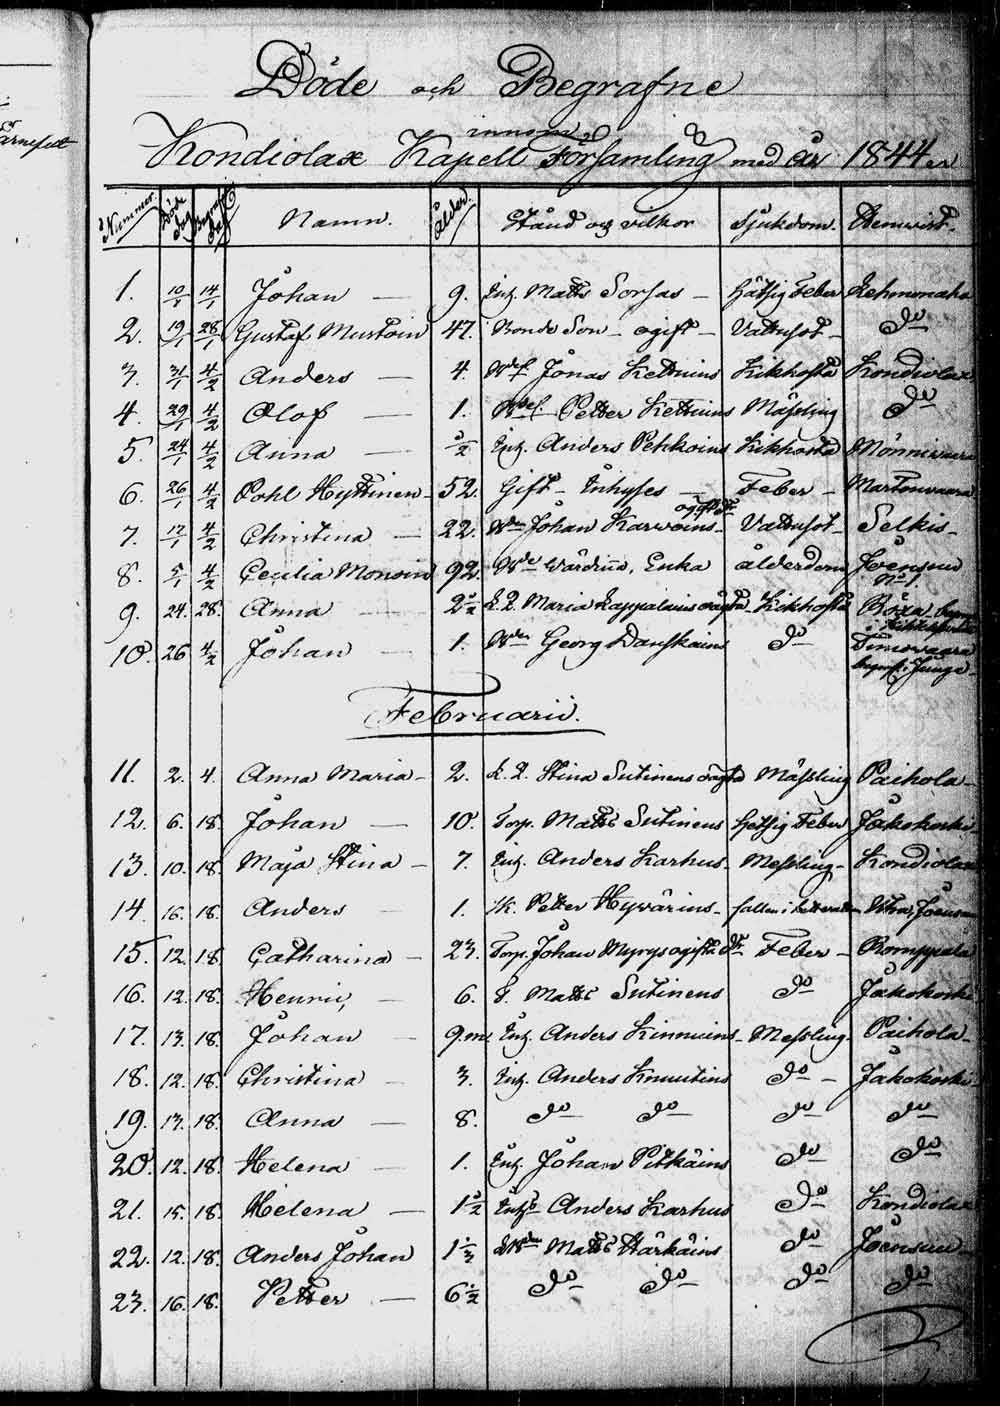 Döde och Begrafne
innom
Kondiolax Kapell Församling med År 1844
Nummer. Döde Dag Begrafn. Dag Namn. Ålder. Stånd och vilkor Sjukdom. Hemvist.
1. 10/1 14/1 Johan — 9. Inh. Matts Sorsas — hätsig Feber Lehmonaho
2. 19/1 28/1 Gustaf Mustoin 47. Bonde Son — ogift — Vattusot — do
3. 31/1 4/2 Anders — 4. Jonas Kettuins Kikhosta Kondiolax
4. 29/1 4/2 Olof — 1. Petter Kettuins Mässling do
5. 24/1 4/2 Anna — 1/2 Inh. Anders Pehkoins Kikhosta Mönnivaara
6. 26/1 4/2 Pohl Hyttinen — 52. Gift — Inhyses — Feber — Martonvaara
7. 17/1 4/2 Christina — 22. Johan Karwoins ogift dr Vattusot — Selkis —
8. 5/1 4/2 Cecilia Monoin 92. Enka ålderdom Joensuu
No 1.
9. 24. 28. Anna — 2 1/2 L. 2. Maria Kappalains oägta Kikhosta Röxa
10. 26 4/2 Johan — 1. Georg Danskains do Timovaara
Februarii.
11. 2. 4. Anna Maria — 2. L. 2. Stina Sutinens oägta Mässling Paihola —
12. 6. 18. Johan — 10. Torp. Matts Sutinens hetsig Feber Jakokoski
13. 10. 18. Maja Stina — 7. Inh. Anders Karhus — Messling — Kondiolax
14. 16. 18. Anders — 1. Petter Hyvärins — fallen i Joensuu
15. 12. 18. Catharina — 23. Torp. Johan Myrys ogifta dr Feber — Romppala
16. 12. 18. Henric, — 6. Matts Sutinens do Jakokoski
17. 13. 18. Johan — 9. m Inh. Anders Kinnuins — Messling — Paihola —
18. 12. 18. Christina — 3. Inh. Anders Knuutins do — Jakokoski
19. 13. 18. Anna — 8. do do do do
20. 12. 18. Helena — 1. Inh. Johan Pitkäins do do
21. 15. 18. Helena — 1 1/2 Inh. Anders Karhus do Kondiolax
22. 12. 18. Anders Johan 1 1/3 Matts Kärkäins do Joensuu
23. 16. 18. Petter — 6 1/2 do do do do